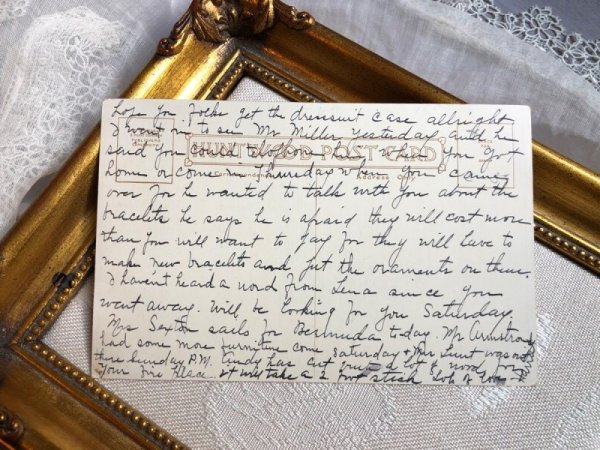 hope you folks get the dressuit case allright
I went over to see Mr Miller yesterday and he
said you could telephone him when you got
HUNTWOOD POST CARD
home or come in Saturday when you came
over for he wanted to talk with you about the
bracelets he says he is afraid they will cost more
than you will want to pay for they will have to
make new bracelets and put the ornaments on them.
I haven't heard a word from Lena since you
went away. Will be looking for you Saturday.
Mrs Sexton sails for Bermuda to-day. Mr Armstrong
had some more furniture come Saturday & Mrs was out
there Sunday P.M. Andy has cut a lot of wood for
your fire place it will take a 2 foot stick lots of love